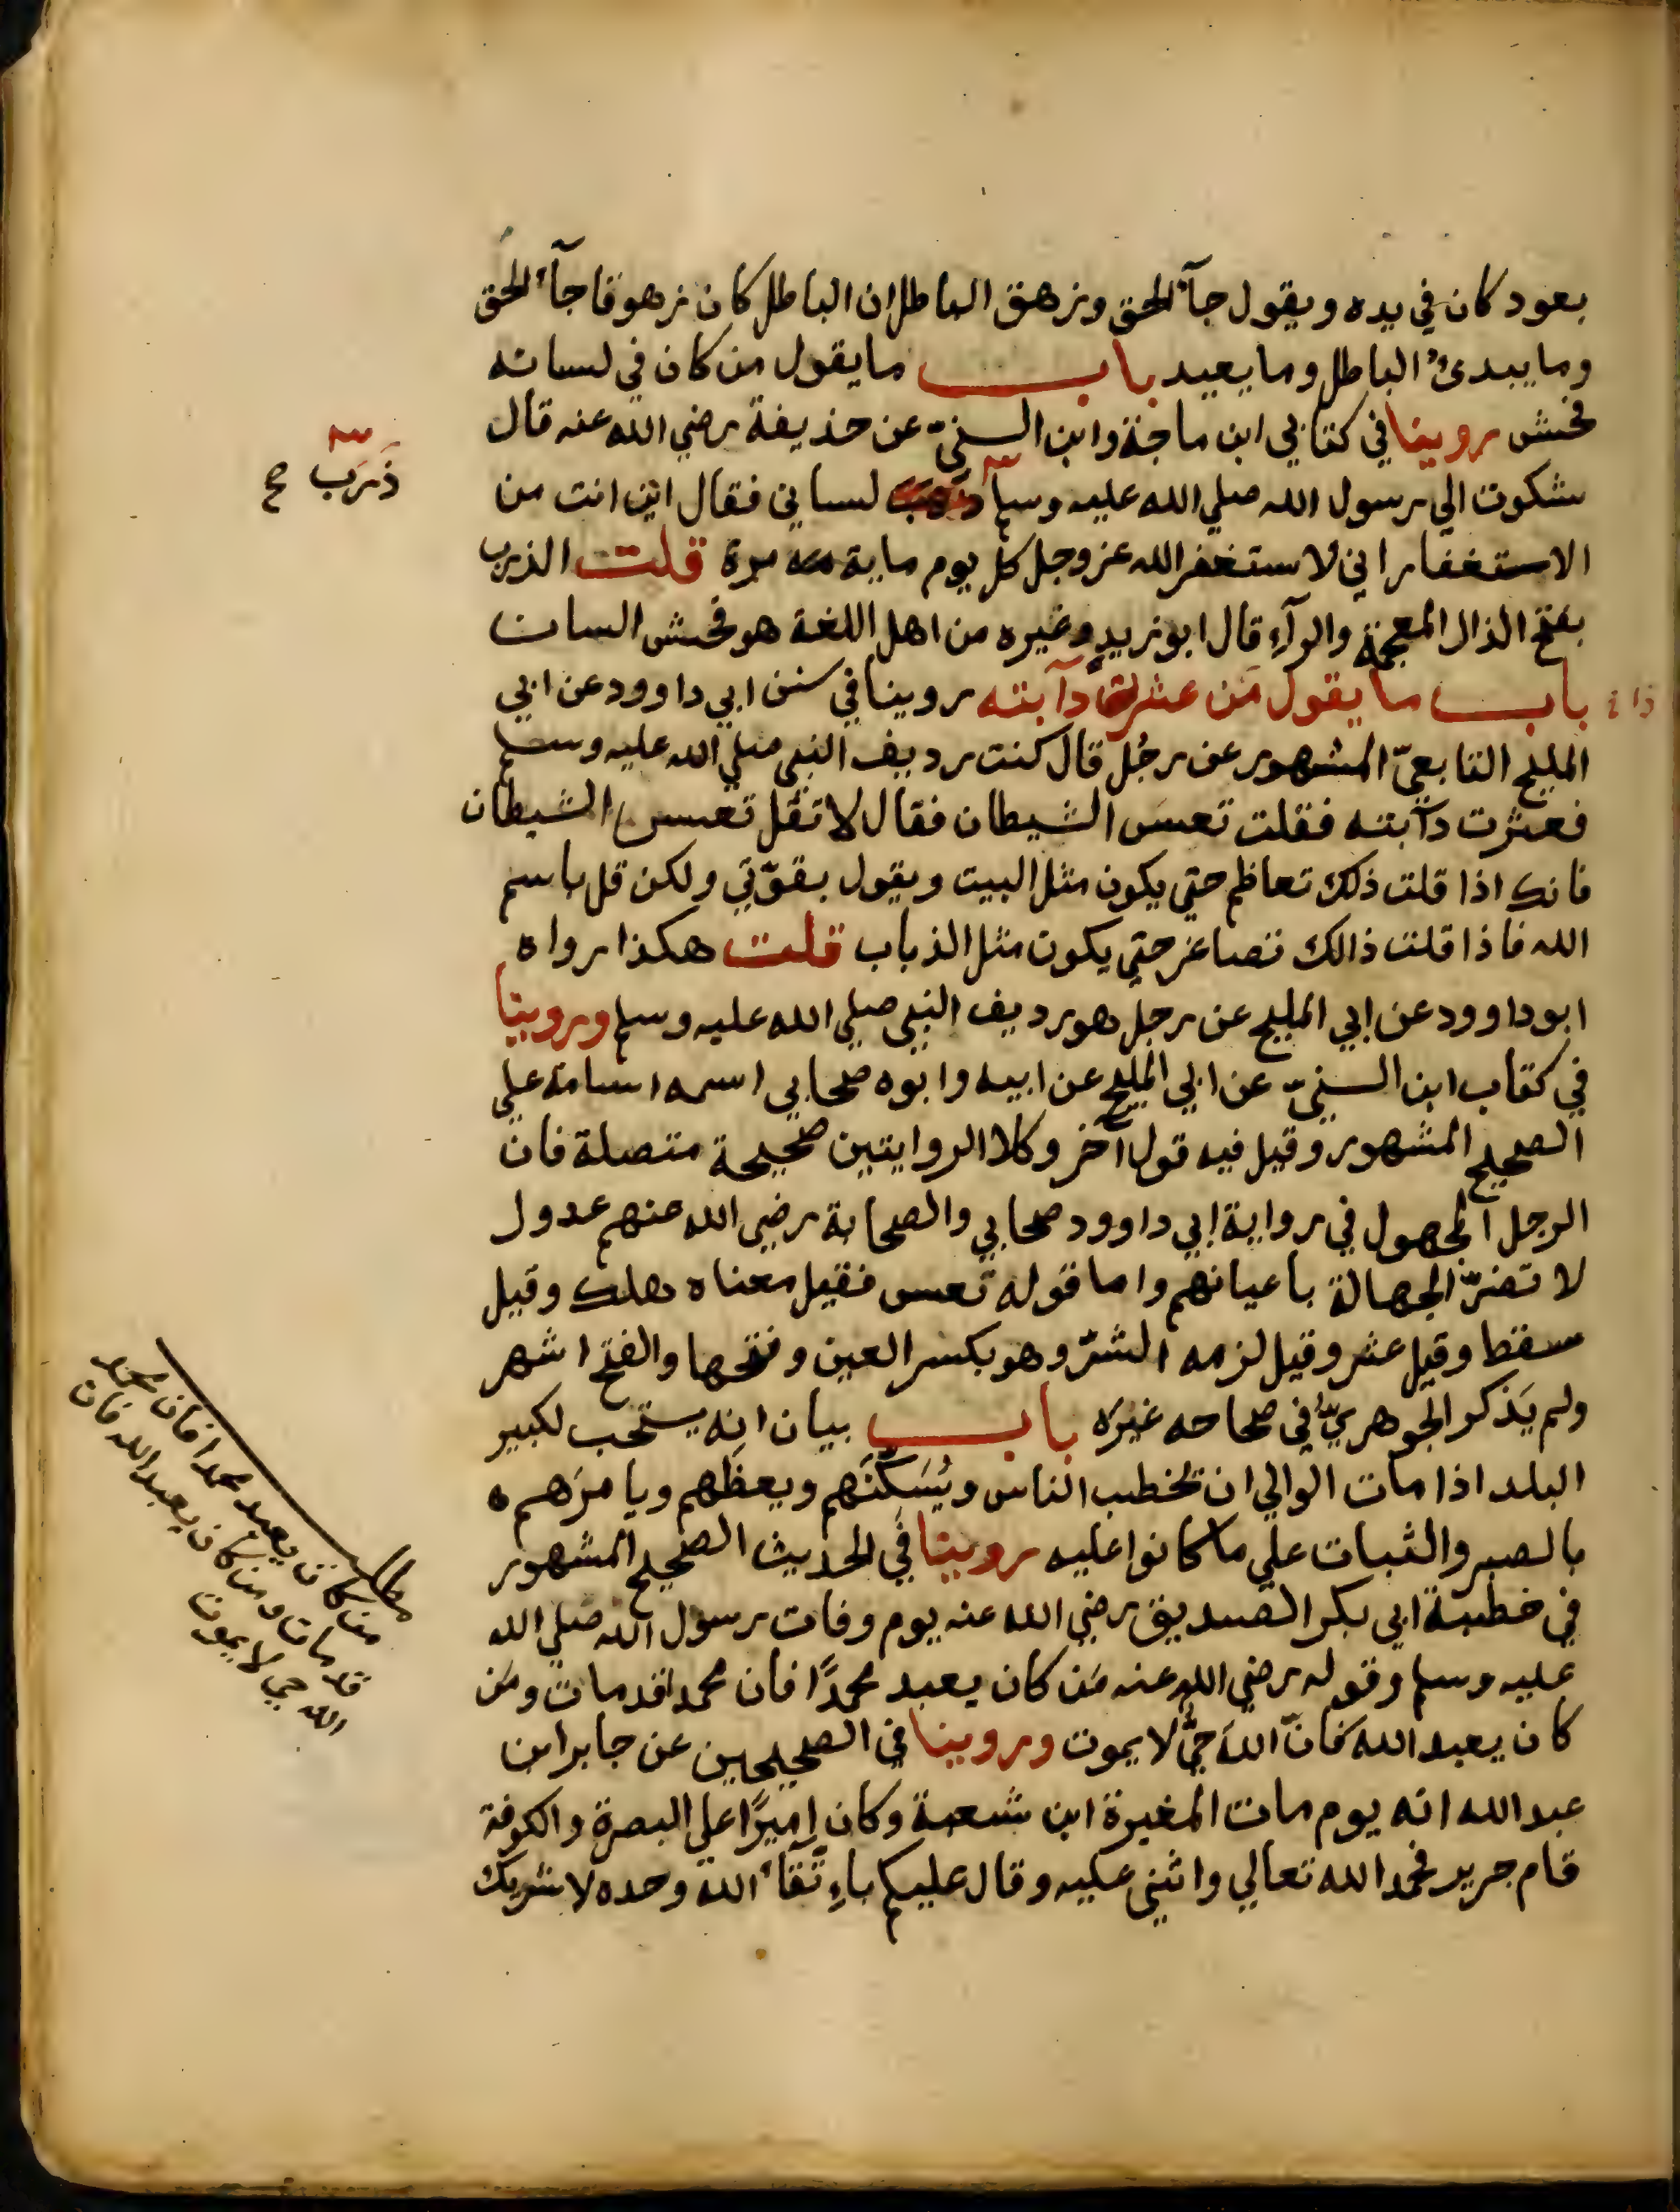 بعود كان في يده ويقول جآء الحق وزهق الباطل ان الباطل كان زهوقا جآء الحق
وما يبدئ الباطل وما يعيد باب ما يقول من كان في لسانه
فحش روينا في كتابي ابن ماجة وابن السنيّ عن حذيفة رضي الله عنه قال
شكوت الي رسول الله صلي الله عليه وسلم لساني فقال اين انت من
ذَرَب صح
الاستغفار اني لاستغفر الله عز وجل كل يوم ماية مرة قلت الذرب
بفتح الذال المعجمة والرآء قال ابو زيد وغيره من اهل اللغة هو فحش اللسان
باب ما يقول مَن عثرت دآبته روينا في سنن ابي داوود عن ابي
المليح التابعيّ المشهور عن رجُل قال كنت رديف النبي صلي الله عليه وسلم
فعثرت دآبته فقلت تعسَ الشيطان فقال لا تقُل تعس الشيطان
فانك اذا قلت ذلك تعاظم حتي يكون مثل البيت ويقول بقوّتي ولكن قل باسم
الله فاذا قلت ذالك تصاغر حتي يكون مثل الذباب قلت هكذا رواه
ابو داوود عن ابي المليح عن رجل هو رديف النبي صلي الله عليه وسلم وروينا
في كتاب ابن السنيّ عن ابي المليح عن ابيه وابوه صحابي اسمه اسامة علي
الصحيح المشهور وقيل فيه قول آخر وكلا الروايتين صحيحة متصلة فان
الرجل المجهول في رواية ابي داوود صحابي والصحابة رضي الله عنهم عدول
لا تضرّ الجهالة باعيانهم واما قوله تعس فقيل معناه هلك وقيل
سقط وقيل عثر وقيل لزمه الشرّ وهو بكسر العين وفتحها والفتح اشهر
ولم يَذكر الجوهريّ في صحاحه غيرَه باب بيان انه يستحب لكبير
البلد اذا مات الوالي ان يخطب الناس ويُسَكّنَهم ويعظَهم ويامرَهم ه
بالصبر والثبات علي ما كانوا عليه روينا في الحديث الصحيح المشهور
في خطبة ابي بكر الصديق رضي الله عنه يوم وفات رسول الله صلي الله
عليه وسلم وقوله رضي الله عنه مَن كان يعبد محمدًا فان محمدا قد مات ومَن
كان يعبد الله فانّ اللهَ حيٌّ لا يموت وروينا في الصحيحين عن جابر ابن
عبد الله انه يوم مات المغيرة ابن شعبة وكان اميرًا علي البصرة والكوفة
قام جرير فحمد الله تعالي واثني عليه وقال عليكم باتّقآء الله وحده لا شريك
مطلب
من كان يعبد محمدا فان محمد
قد مات ومن كان يعبد الله فان
الله حي لا يموت